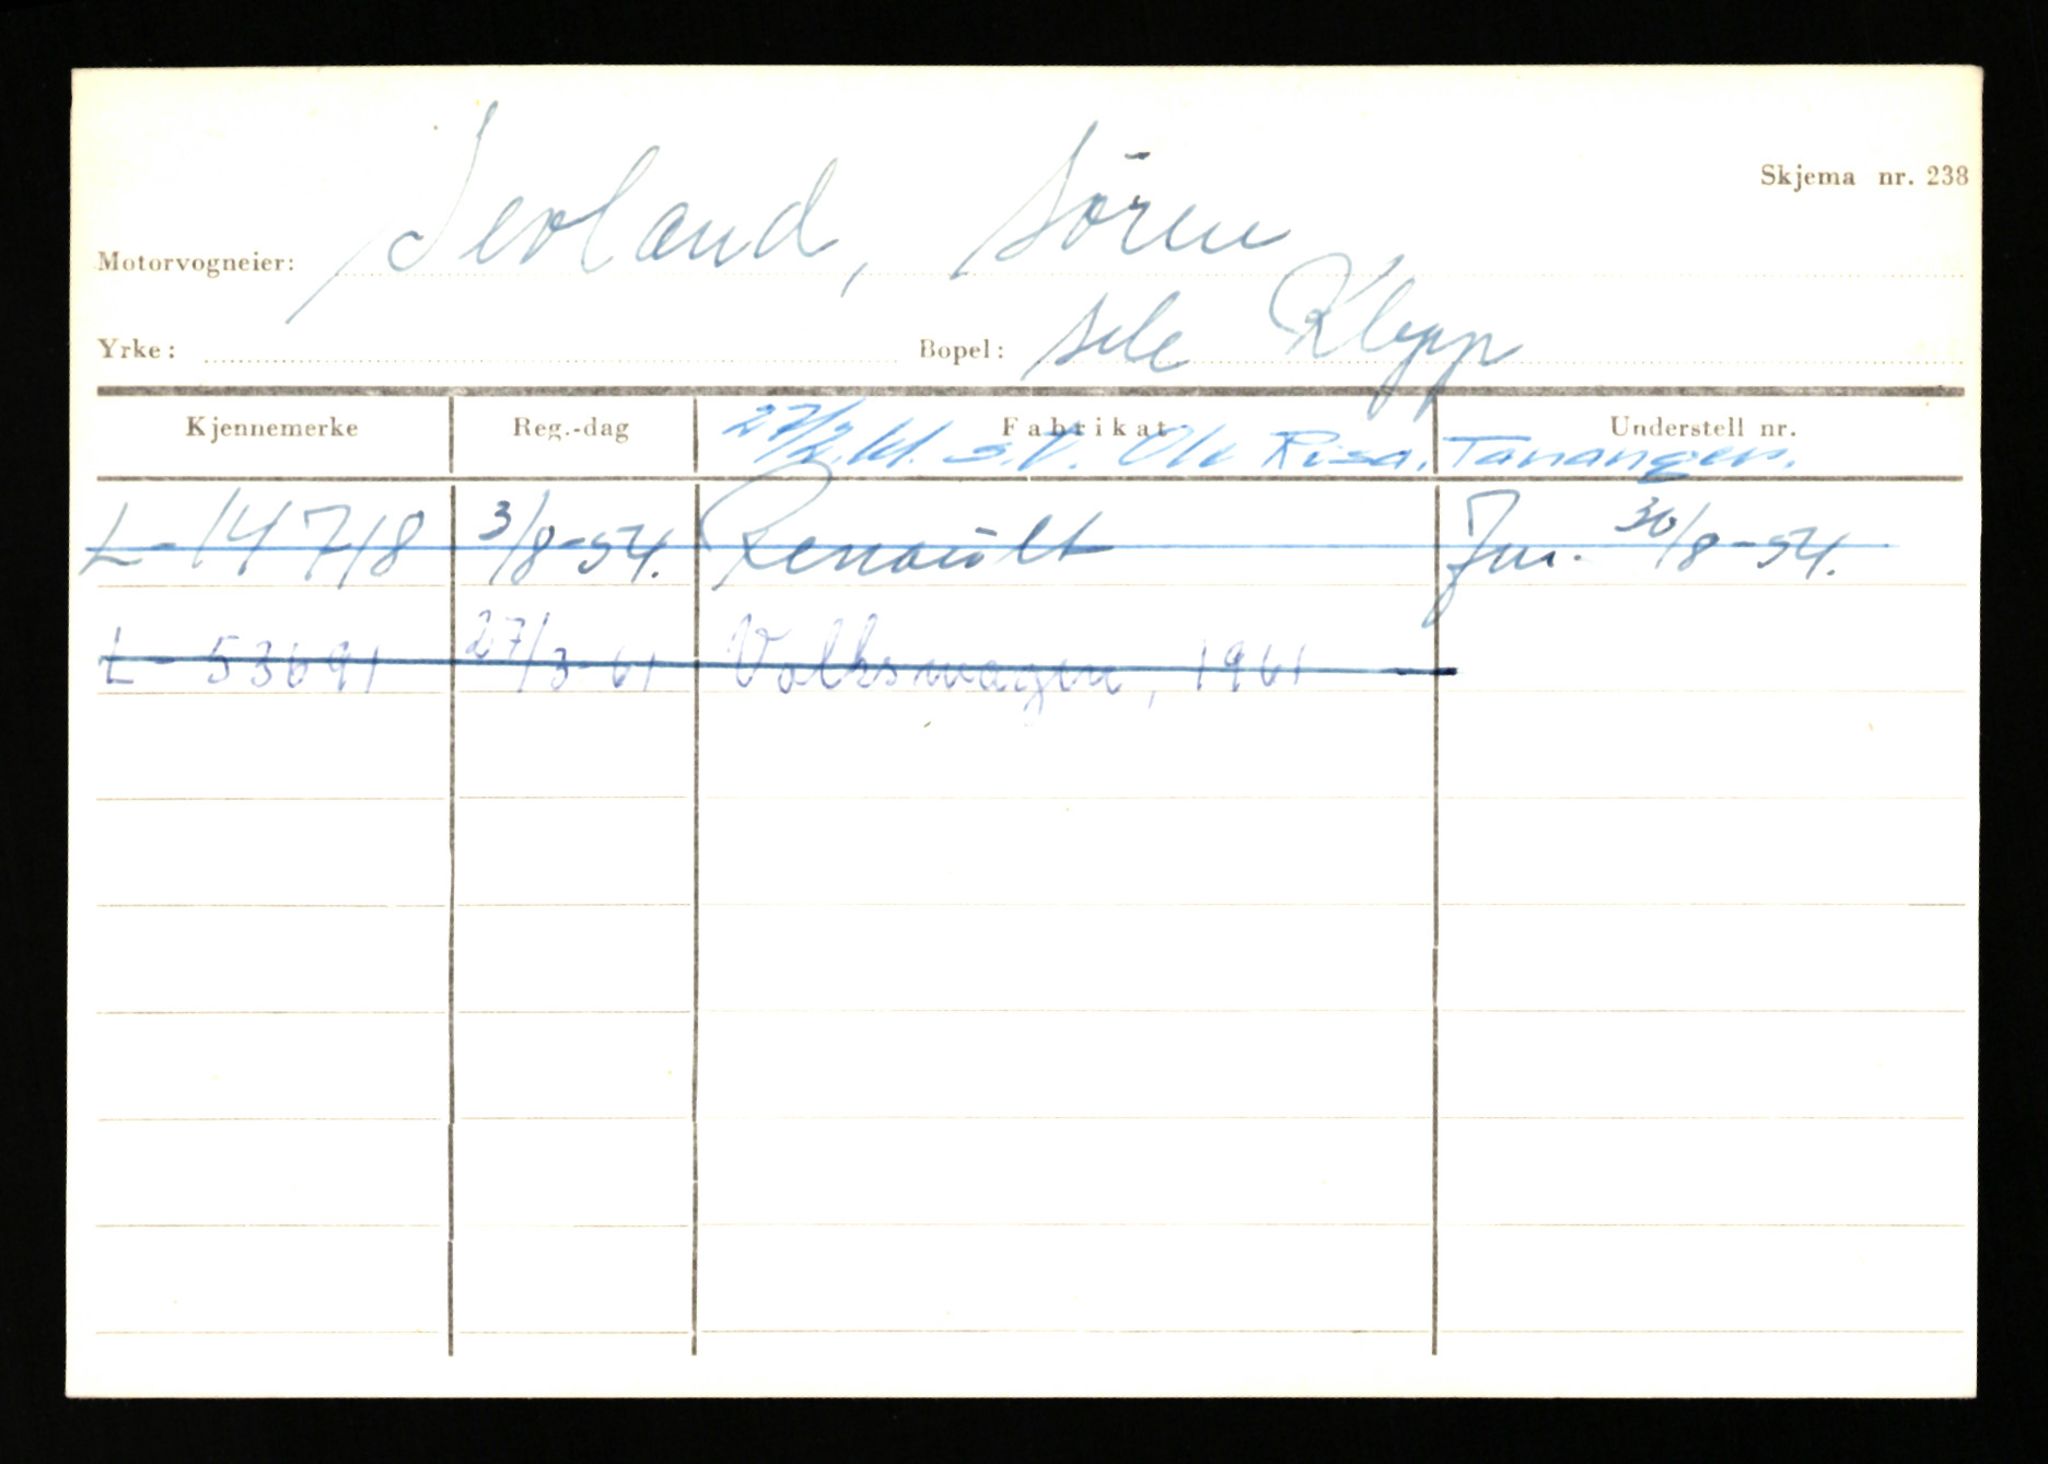 Skjema nr. 238
Motorvogneier: Sevland, Sören
Yrke: Bopel: Sele Klepp
Kjennemerke Reg.-dag Fabrikat Understell nr.
27/2.61. s.t. Ole Risa, Tananger.
L-14718 3/8-54. Renault 30/8-54.
L-53691 27/3-61 Volkswagen, 1961